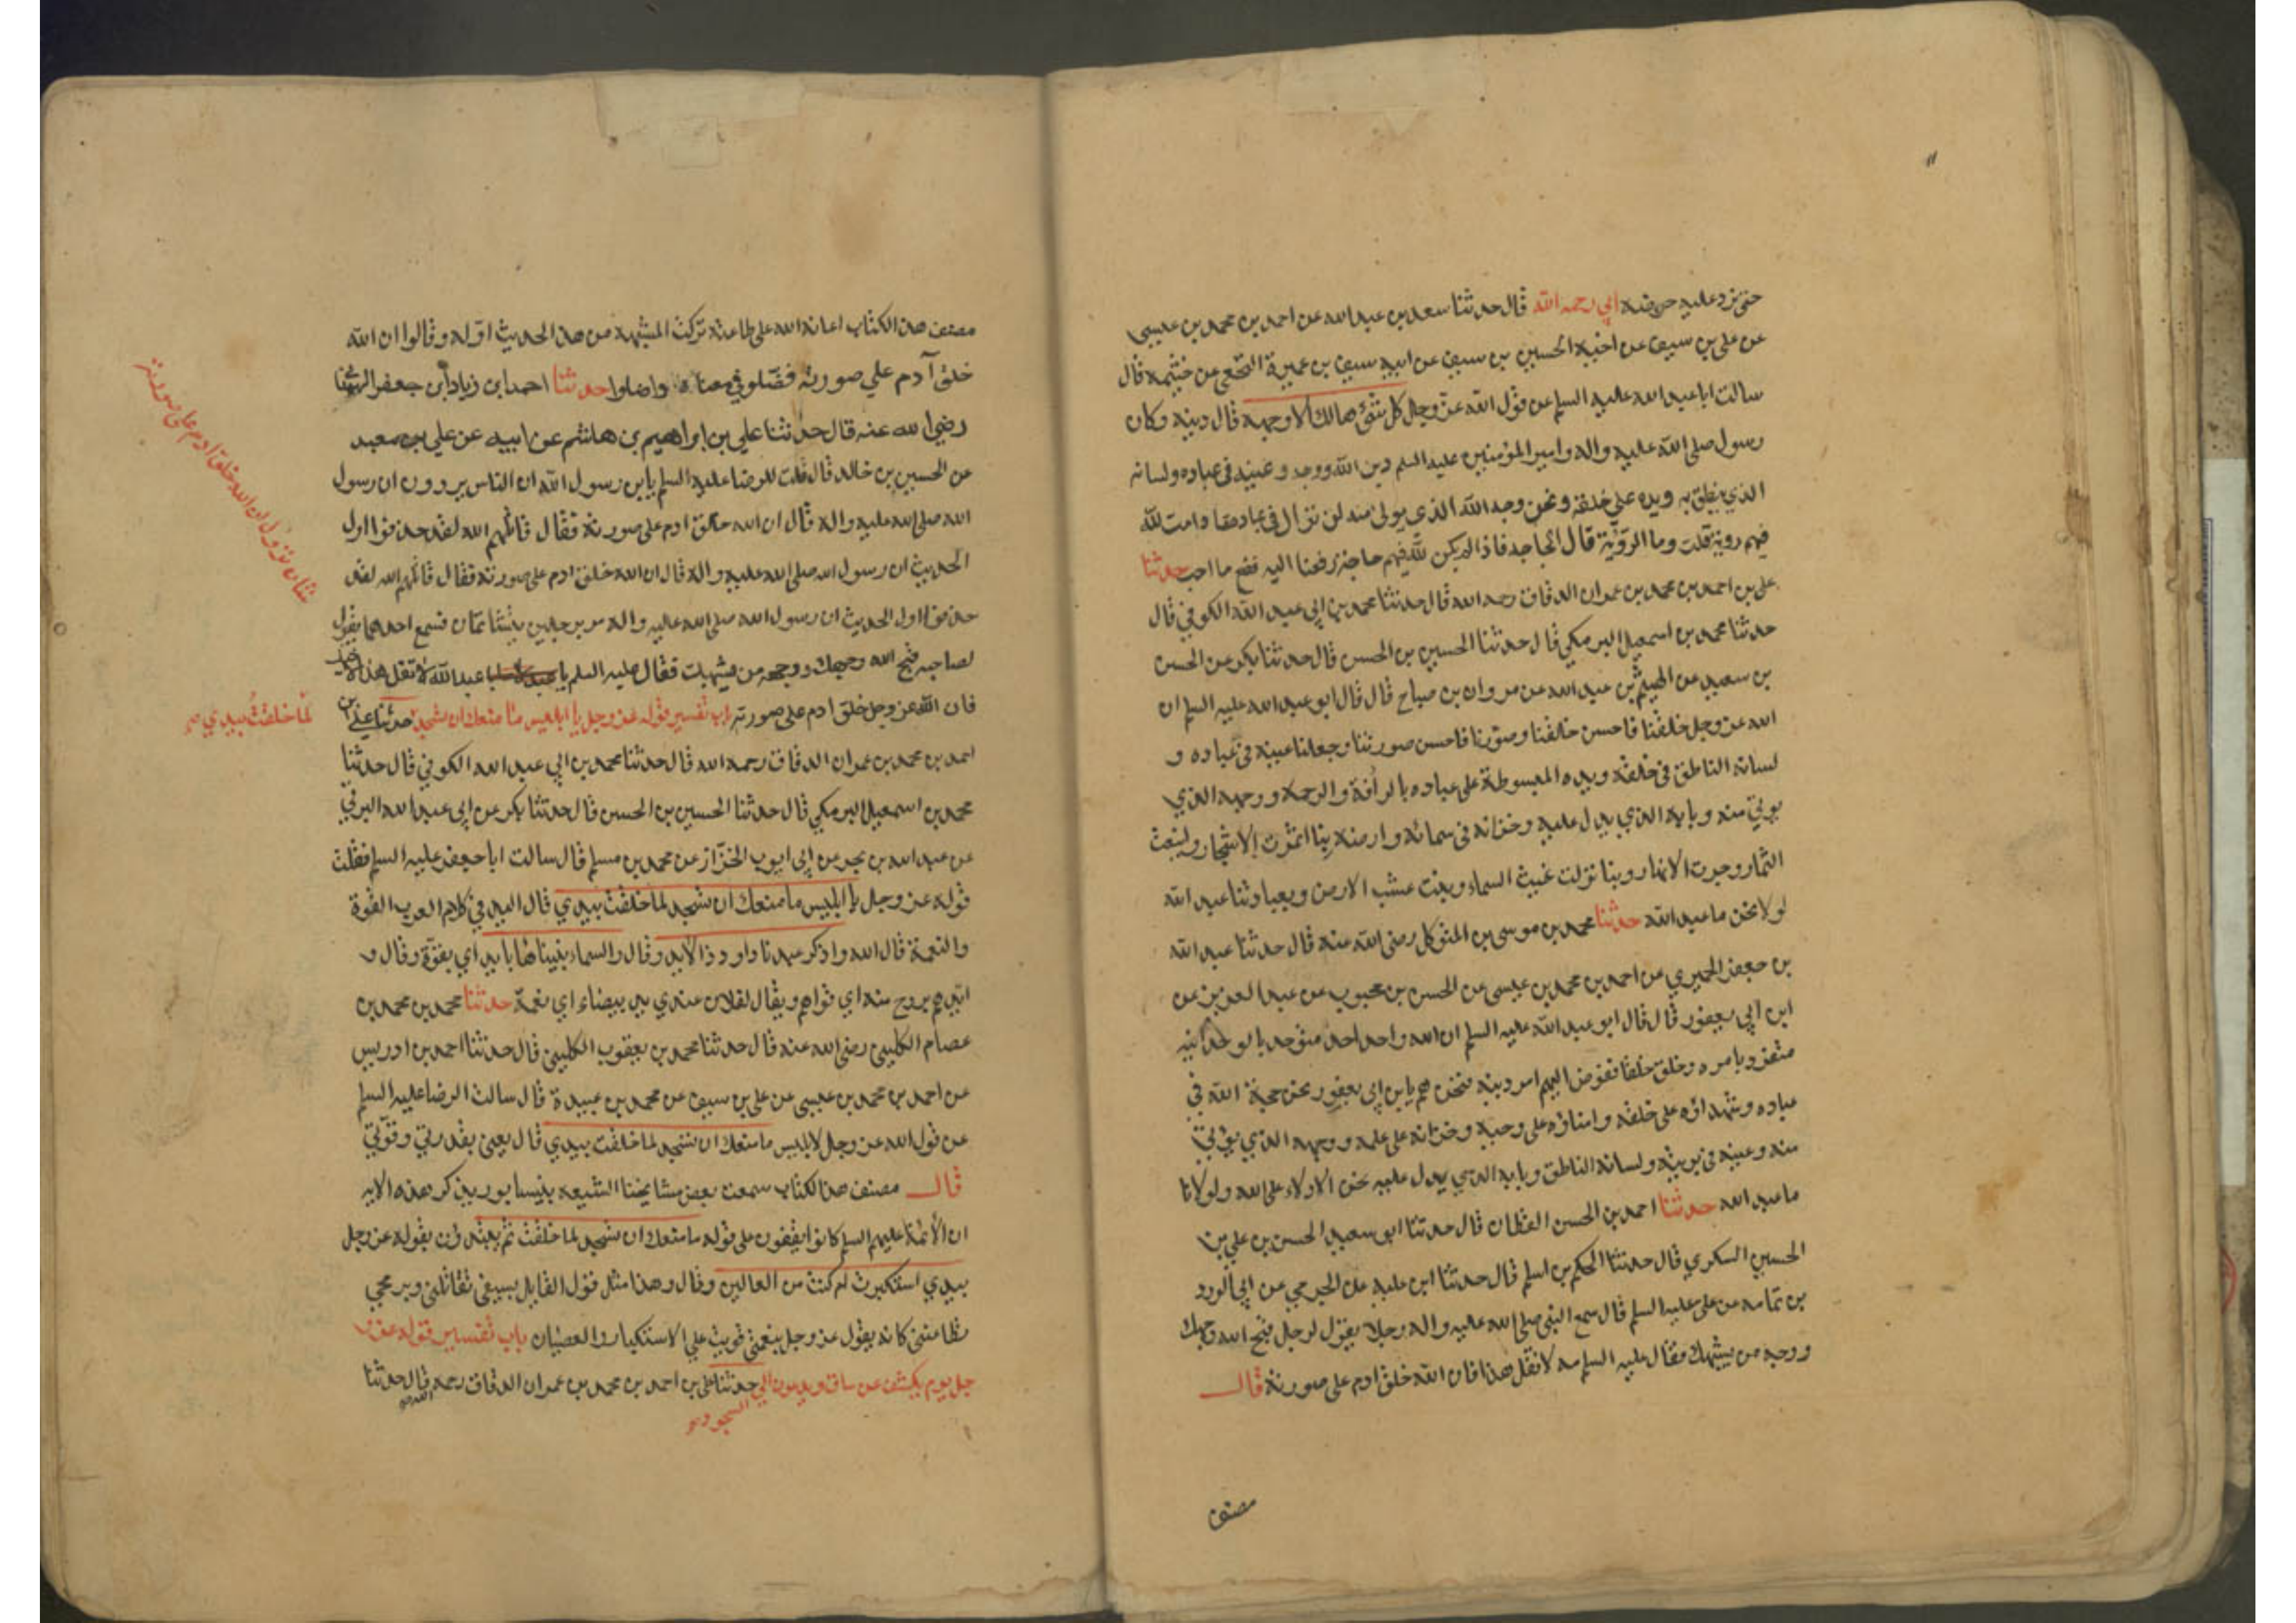 حتى نرد عليه حوضه ابي رحمه الله قال حدثنا سعد بن عبد الله عن احمد بن محمد بن عيسى
عن علي بن سيف عن اخيه الحسين بن سيف عن ابيه سيف بن عميرة النخعي عن خثيمه قال
سالت ابا عبد الله عليه السلم عن قول الله عز وجل كل شئ هالك الا وجهه قال دينه وكان
رسول صلى الله عليه واله وامير المؤمنين عليه السلم دين الله ووجهه وعينه في عباده ولسانه
الذي ينطق به ويده على خلقه ونحن وجه الله الذي يولى منه لن نزال في عباده ما دامت لله
فيهم روية قلت وما الروية قال الحاجه فاذا لم يكن لله فيهم حاجة رفعنا اليه فصنع ما احب حدثنا
علي بن احمد بن محمد بن عمران الدقاق رحمه الله قال حدثنا محمد بن ابي عبد الله الكوفي قال
حدثنا محمد بن اسمعيل البرمكي قال حدثنا الحسين بن الحسن قال حدثنا بكر عن الحسن
بن سعيد عن الهيثم بن عبد الله عن مروان بن صباح قال قال ابو عبد الله عليه السلم ان
الله عز وجل خلقنا فاحسن خلقنا وصورنا فاحسن صورتنا وجعلنا عينه في عباده و
لسانه الناطق في خلقه ويده المبسوطة على عباده بالرافة والرحمة ووجهه الذي
يوتى منه وبابه الذي يدل عليه وخزانه في سمائه وارضه بنا اثمرت الاشجار واينعت
الثمار وجرت الانهار وبنا نزلت غيث السماء ونبت عشب الارض وبعبادتنا عبد الله
لولا نحن ما عبد الله حدثنا محمد بن موسى بن المتوكل رضي الله عنه قال حدثنا عبد الله
بن جعفر الحميري عن احمد بن محمد بن عيسى عن الحسن بن محبوب عن عبد العزيز عن
ابن ابي يعفور قال قال ابو عبد الله عليه السلم ان الله واحد احد متوحد بالوحدانيه
متفرد بامره وخلق خلقا ففوض اليهم امر دينه فنحن هم يا بن ابي يعفور نحن حجة الله في
عباده وشهداؤه على خلقه وامناؤه على وحيه وخزانه على علمه ووجهه الذي يؤتى
منه وعينه في بريته ولسانه الناطق وبابه الذي يدل عليه نحن الادلاء على الله ولولانا
ما عبد الله حدثنا احمد بن الحسن القطان قال حدثنا ابو سعيد الحسن بن علي بن
الحسين السكري قال حدثنا الحكم بن اسلم قال حدثنا ابن عليه عن الجريري عن ابي الورد
بن ثمامه عن علي عليه السلم قال سمع النبي صلى الله عليه واله رجلا يقول لرجل قبح الله وجهك
ووجه من يشبهك فقال عليه السلم مه لا تقل هذا فان الله خلق ادم على صورته قال
مصنف
مصنف هذا الكتاب اعانه الله على طاعته تركت المشبهه من هذا الحديث اوله وقالوا ان الله
خلق آدم علي صورته فضلو في معناه واضلوا حدثنا احمد ابن زياد ابن جعفر الهمداني
رضي الله عنه قال حدثنا علي بن ابراهيم بن هاشم عن ابيه عن علي بن معبد
عن الحسين بن خالد قال قلت للرضا عليه السلم يا بن رسول الله ان الناس يروون ان رسول
الله صلى الله عليه واله قال ان الله خلق ادم على صورته فقال قاتلهم الله لقد حذفوا اول
الحديث ان رسول الله صلى الله عليه واله قال ان الله خلق ادم على صورته فقال قاتلهم الله لقد
حذفوا اول الحديث ان رسول الله صلى الله عليه واله مر برجلين يتشاتمان فسمع احدهما يقول
لصاحبه قبح الله وجهك ووجهه من يشبهك فقال عليه السلم يا عبد الله لا تقل هذا لاخيك
فان الله عز وجل خلق ادم على صورته باب تفسير قوله عز وجل يا ابليس ما منعك ان تسجد حدثنا علي بن
لما خلقت بيدي صح
احمد بن محمد بن عمران الدقاق رحمه الله قال حدثنا محمد بن ابي عبد الله الكوفي قال حدثنا
محمد بن اسمعيل البرمكي قال حدثنا الحسين بن الحسن قال حدثنا بكر عن ابي عبد الله البرقي
عن عبد الله بن بحر عن ابي ايوب الخزاز عن محمد بن مسلم قال سالت ابا جعفر عليه السلم فقلت
قوله عز وجل يا ابليس ما منعك ان تسجد لما خلقت بيدي قال اليد في كلام العرب القوة
والنعمة قال الله واذكر عبدنا داود ذا الايد وقال والسماء بنيناها بايد اي بقوة وقال و
ايدهم بروح منه اي قواهم ويقال لفلان عندي يد بيضاء اي نعمة حدثنا محمد بن محمد بن
عصام الكليني رضي الله عنه قال حدثنا محمد بن يعقوب الكليني قال حدثنا احمد بن ادريس
عن احمد بن محمد بن عيسى عن علي بن سيف عن محمد بن عبيدة قال سالت الرضا عليه السلم
عن قول الله عز وجل لابليس ما منعك ان تسجد لما خلقت بيدي قال يعني بقدرتي وقوتي
قال مصنف هذا الكتاب سمعت بعض مشايخنا الشيعه بنيسابور يذكر هذه الايه
ان الأئمة عليهم السلم كانوا يقفون على قوله ما منعك ان تسجد لما خلقت ثم يبتدؤن بقوله عز وجل
بيدي استكبرت ام كنت من العالين وقال وهذا مثل قول القايل بسيفي تقاتلني وبرمحي
تطاعنني كانه يقول عز وجل بنعمتي قويت علي الاستكبار والعصيان باب تفسير قوله عز و
جل يوم يكشف عن ساق ويدعون الي حدثنا علي بن احمد بن محمد بن عمران الدقاق رحمه قال حدثنا
السجود
الله
شان نزول ان الله خلق ادم على صورته